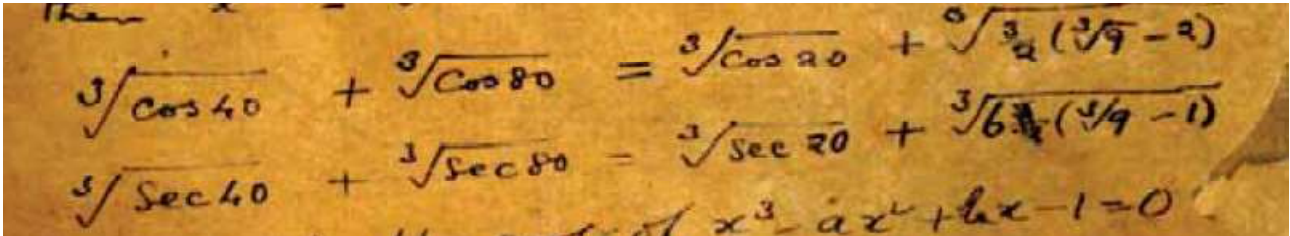 then x
∛cos 40 + ∛cos 80 = ∛cos 20 + ∛3/2 (∛9 - 2)
∛sec 40 + ∛sec 80 = ∛sec 20 + ∛6 (∛9 - 1)
of x³ - ax² + bx - 1 = 0